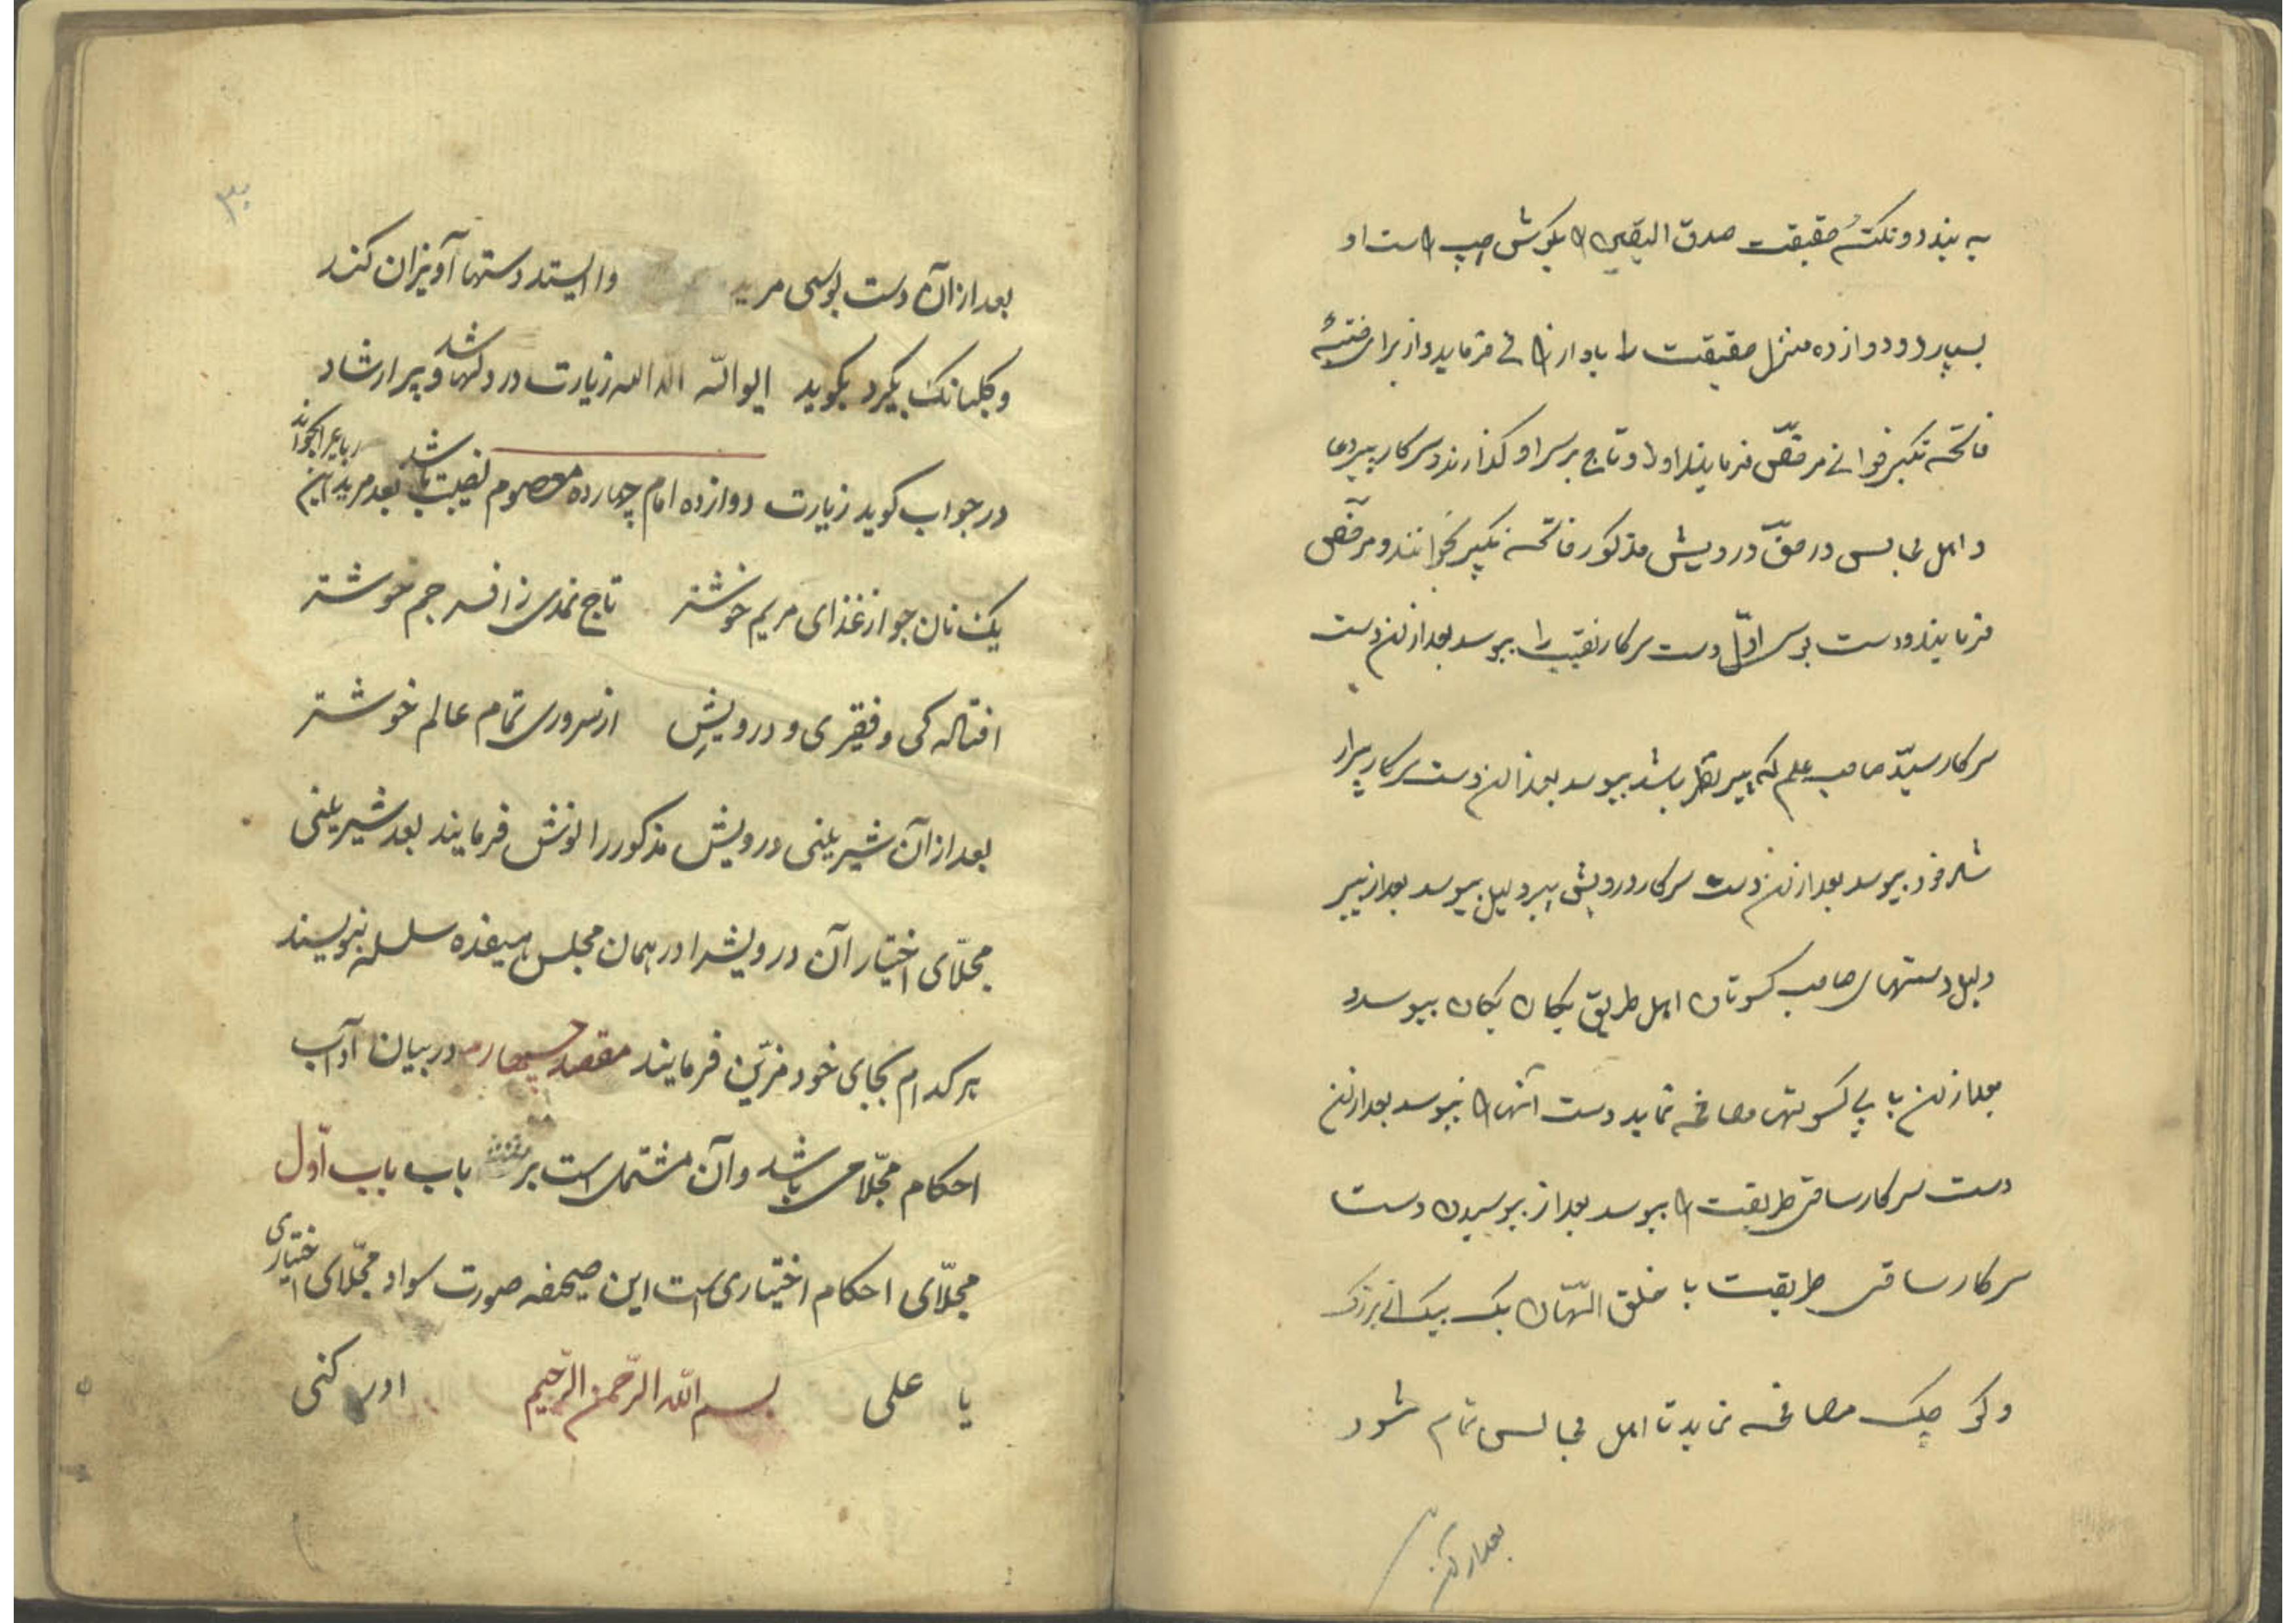 به بندد و نکتهٔ حقیقت صدق الیقین را بگوش چپ راست او
بسپارد و دوازده منزل حقیقت را باو ارزانی فرماید و از برای
فاتحه تکبیر خوانی مرخّص فرمایند او را و تاج بر سر او گذارند و سرکار پیر دعا
و اهل مجالس در حقّ درویش مذکور فاتحه تکبیر بخوانند و مرخّص
فرمایند و دست بوس اوّل دست سرکار نقیب را ببوسد بعد از آن دست
سرکار سیّد صاحب علم که پیر نظر باشد ببوسد بعد از آن دست سرکار پیر ار
شاد خود ببوسد بعد از آن دست سرکار درویش پیر دلیل ببوسد بعد از پیر
دلیل دستهای صاحب کسوتان اهل طریق یکان یکان ببوسد و
بعد از آن با بی کسوتها مصافحه نماید دست آنها را نبوسد بعد از آن
دست سرکار ساقی طریقت را ببوسد بعد از بوسیدن دست
سرکار ساقی طریقت با خلق اللّهان یک بیک از بزرگ
و کوچک مصافحه نماید تا اهل مجالس تمام شود
بعد از آن
۳۰
بعد از آن دست بوسی مرید وا ایستد دستها آویزان کند
و گلبانگ بگیرد بگوید ایوالله الله الله زیارت در دلها باشد و پیر ارشاد
در جواب گوید زیارت دوازده امام چهارده معصوم نصیب باشد بعد مرید این رباعی را بخواند
یک نان جو از غذای مریم خوشتر تاج نمدی ز افسر جم خوشتر
افتاله کی و فقیری و درویشی از سروری تمام عالم خوشتر
بعد از آن شیرینی درویش مذکور را نوش فرمایند بعد شیرینی
مجلّای اختیار آن درویش را در همان مجلس هیفده سلسله بنویسند
هر کدام بجای خود مزیّن فرمایند مقصد چهارم در بیان آداب
احکام مجلّا می باشد و آن مشتمل است بر باب باب اوّل
مجلّای احکام اختیاری است این صحیفه صورت سواد مجلّای اختیاری
یا علی بسم الله الرّحمن الرّحیم ادرکنی